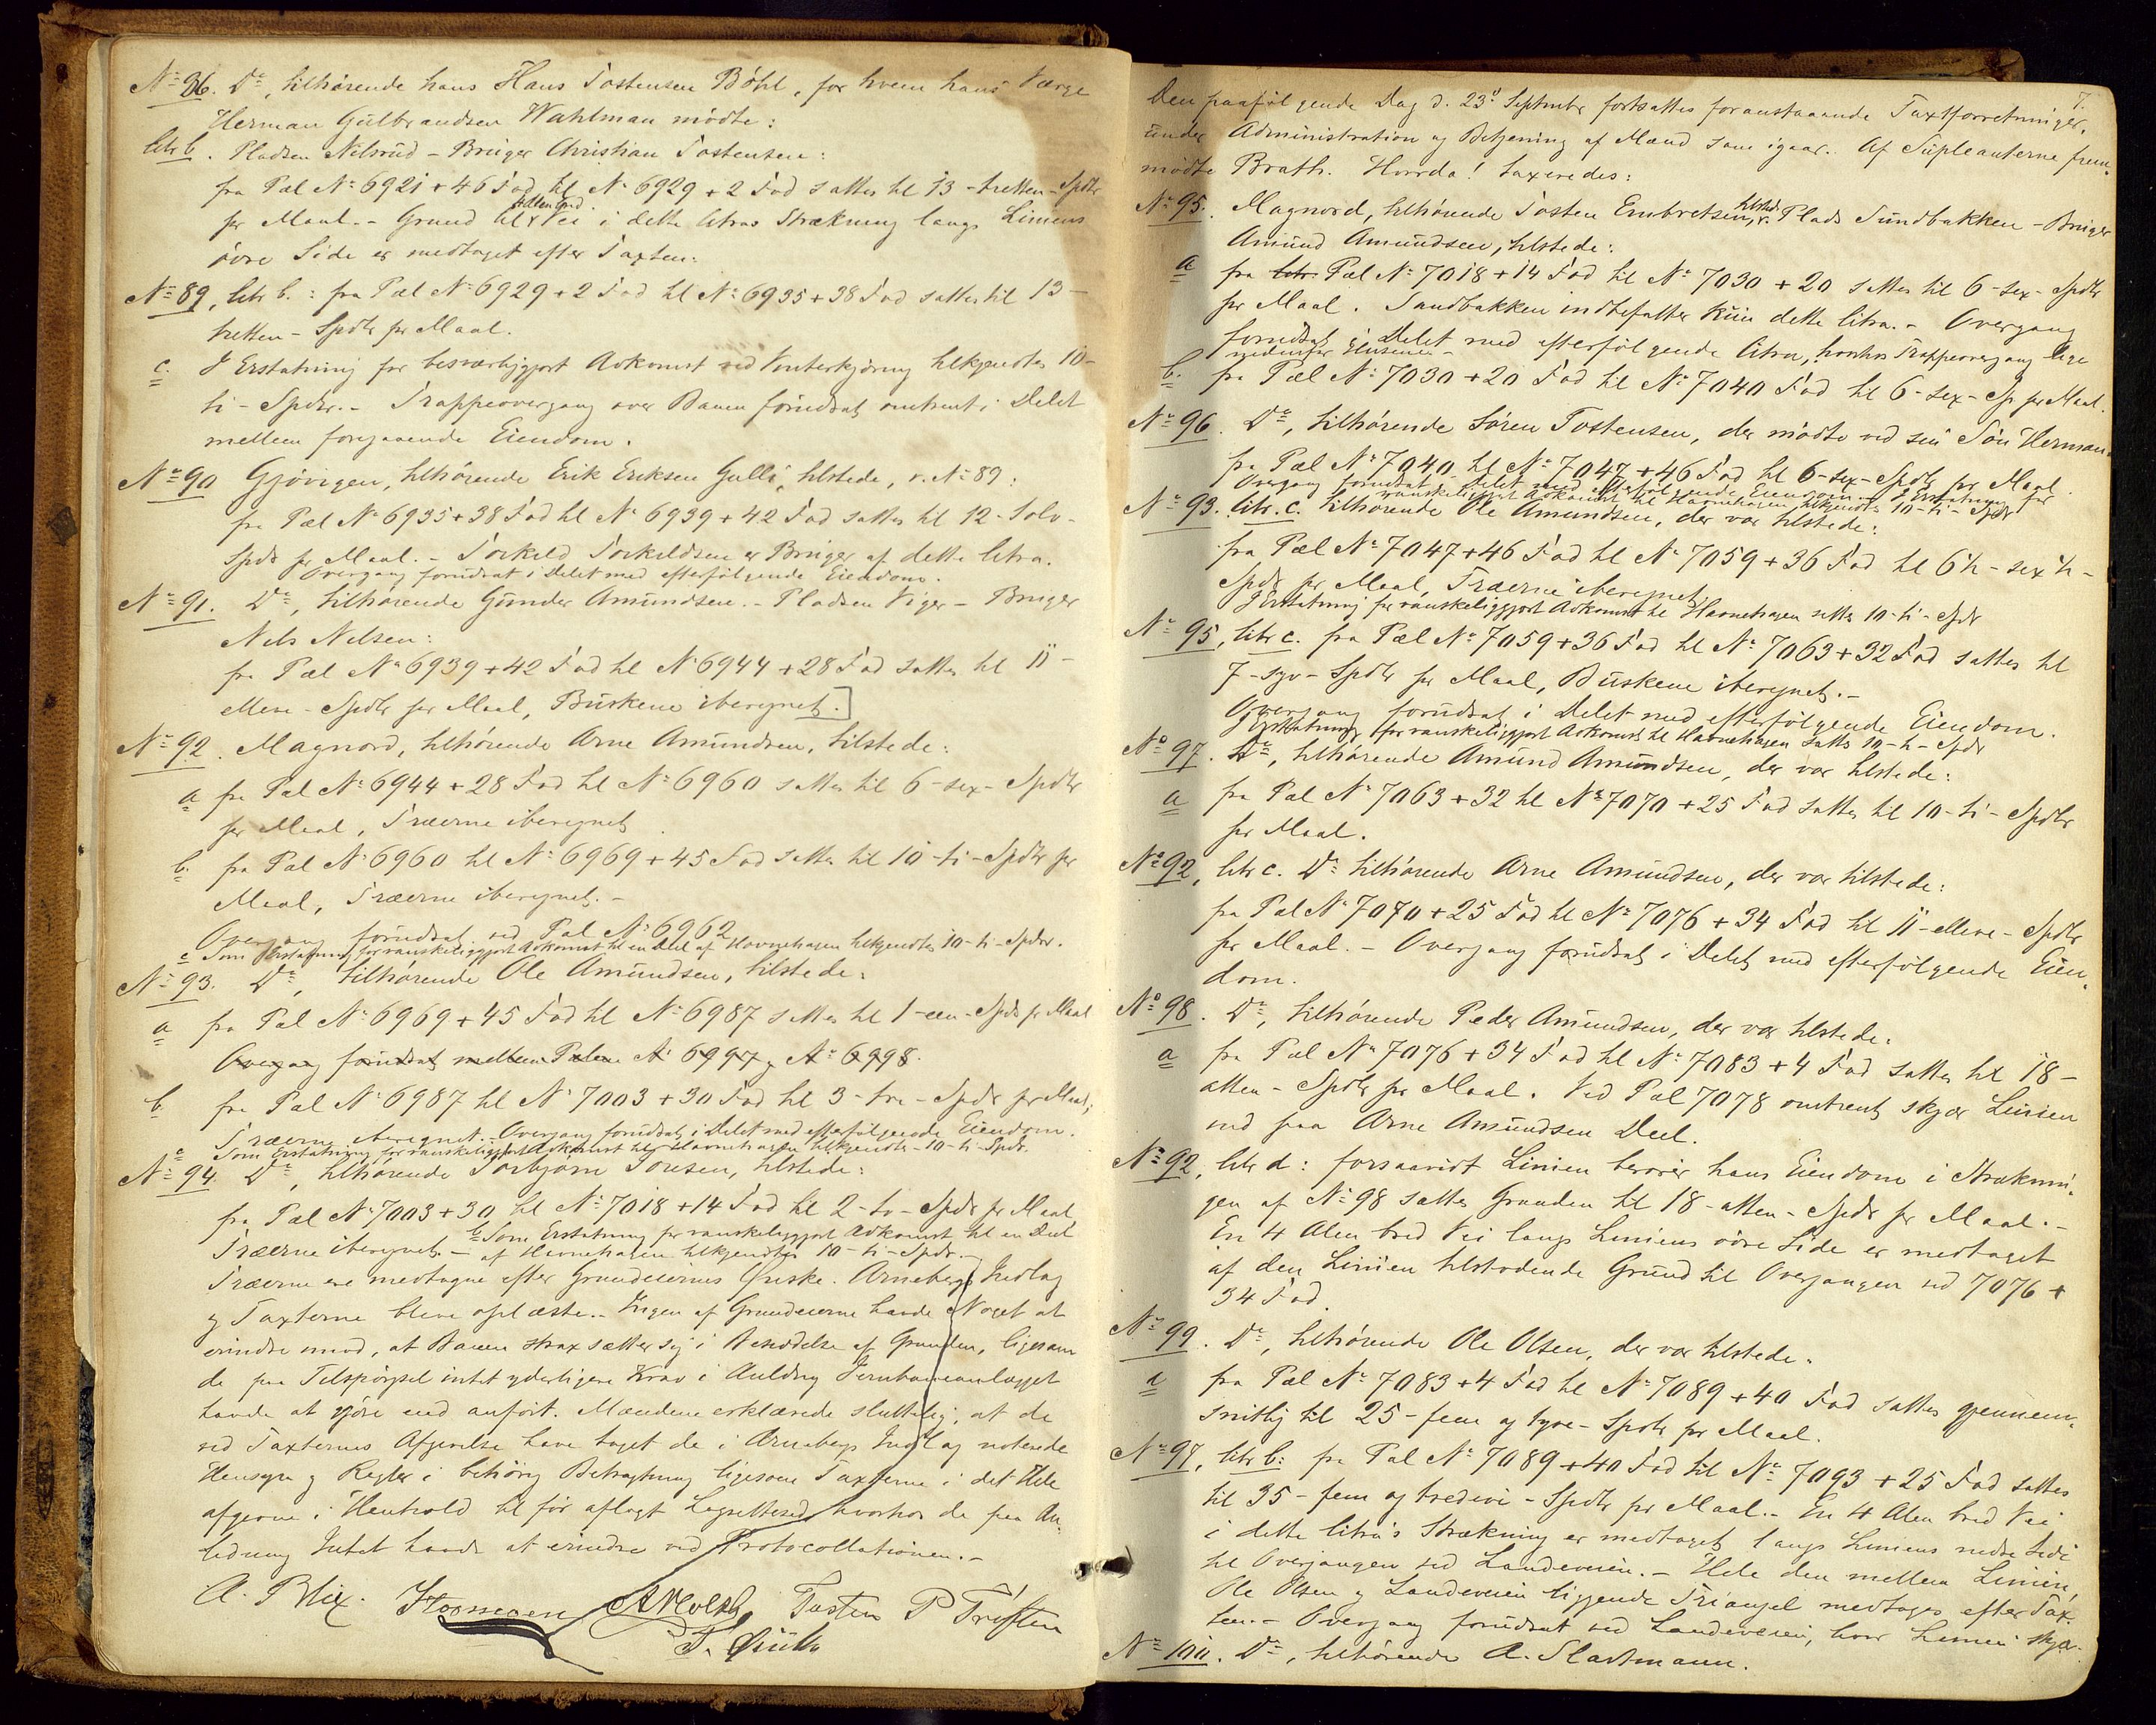 No 36. Do, tilhørende hans Hans Tostensen Bøhl, for hvem hans Værge
Herman Gulbrandsen Wahlman mødte:
litr b. Pladsen Nilsrud - Bruger Christian Tostensen:
fra Pæl No 6921 + 46 Fod til No 6929 + 2 Fod sattes til 13 - tretten - Spdlr
pr Maal. - Grund til Vei i dette litras Strækning langs Liniens
øvre Side er medtaget efter Taxten.
No 89, litr b. : fra Pæl No 6929 + 2 Fod til No 6935 + 38 Fod sattes til 13 -
tretten - Spdlr pr Maal.
c. I Erstatning for besværliggjort Adkomst ved Vinterkjøring tilkjendtes 10 -
ti - Spdlr. - Trappeovergang over Banen forudsat omtrent i Delet
mellem foregaaende Eiendom.
No 90 Gjøvigen, tilhørende Erik Eriksen Gulli, tilstede, v. No 89:
fra Pæl No 6935 + 38 Fod til No 6939 + 42 Fod sattes til 12 - tolv -
Spdlr pr Maal. - Torkild Torkildsen er Bruger af dette litra.
Overgang forudsat i Delet med efterfølgende Eiendom.
No 91. Do, tilhørende Gunder Amundsen. - Pladsen Viger - Bruger
Nils Nilsen:
fra Pæl No 6939 + 42 Fod til No 6944 + 28 Fod sattes til 11 -
elleve - Spdlr pr Maal, Buskene iberegnet.
No 92. Magnord, tilhørende Arne Amundsen, tilstede:
a fra Pæl No 6944 + 28 Fod til No 6960 sattes til 6 - sex - Spdlr
pr Maal, Træerne iberegnet
b. fra Pæl No 6960 til No 6969 + 45 Fod sattes til 10 - ti - Spdlr pr
Maal, Træerne iberegnet. -
Overgang forudsat ved Pæl No 6962
c Som Erstatning for vanskeliggjort Adkomst til en Deel af Havnehagen tilkjendtes 10 - ti - Spdlr.
No 93. Do, tilhørende Ole Amundsen, tilstede:
a fra Pæl No 6969 + 45 Fod til No 6987 sattes til 1 - een - Spdlr pr Maal
Overgang forudsat mellem Pælene No 6997 og No 6998.
b. fra Pæl No 6987 til No 7003 + 30 Fod til 3 - tre - Spdlr pr Maal,
Træerne iberegnet. - Overgang forudsat i Delet med efterfølgende Eiendom.
c Som Erstatning for vanskeliggjort Adkomst til Havnehagen tilkjendtes 10 - ti - Spdlr.
No 94. Do, tilhørende Torbjørn Tonsen, tilstede:
fra Pæl No 7003 + 30 til No 7018 + 14 Fod til 2 - to - Spdlr pr Maal
Træerne iberegnet. - b Som Erstatning for vanskeliggjort Adkomst til en Deel
af Havnehagen tilkjendtes 10 - ti - Spdlr. -
Træerne ere medtagne efter Grundeiernes Ønske. Arnebergs Indlag
og Taxterne bleve oplæste. - Ingen af Grundeierne havde Noget at
erindre imod, at Banen strax sætter sig i Besiddelse af Grunden, ligesom
de paa Tilspørgsel intet yderligere Krav i Anledng Jernbaneanlægget
havde at gjøre end anført. Mændene erklærede sluttelig, at de
ved Taxternes Afgivelse have taget de i Arnebergs Indlag noterede
Hensyn og Regler i behørig Betragtning ligesom Taxterne i det Hele
afgivne i Henhold til før aflagt Lagrettesed hvorhos de paa An-
ledning Intet havde at erindre ved Protocollationen. -
A. Blix. Tosten P Trøften
7.
Den paafølgende Dag d. 23d Septmbr fortsattes foranstaaende Taxtforretninger,
under Administration og Betjening af Mænd som igaar. Af Supleanterne frem-
mødte Brath. Hvorda! taxeredes:
No 95. Magnord, tilhørende Tosten Embretsen, tilsted. v. Plads Sundbakken - Bruger
Amund Amundsen, tilstede:
a fra litr. Pæl No 7018 + 14 Fod til No 7030 + 20 sattes til 6 - sex - Spdlr
pr Maal. Sandbakken indbefatter kun dette litra. - Overgang
forudsat i Delet med efterfølgende litra, hvorhos Trappeovergang lige
nedenfor Husene -
b. fra Pæl No 7030 + 20 Fod til No 7040 Fod til 6 - sex - Sp pr Maal.
No 96. Do, tilhørende Søren Tostensen, der mødte ved sin Søn Herman.
fra Pæl No 7040 til No 7047 + 46 Fod til 6 - sex - Spdlr pr Maal.
Overgang forudsat i Delet med efterfølgende Eiendom. - I Erstatning for
vanskeliggjort Adkomst til Havnehagen tilkjendtes 10 - ti - Spdlr
No 93. litr. c. tilhørende Ole Amundsen, der var tilstede:
fra Pæl No 7047 + 46 Fod til No 7059 + 36 Fod til 6½ - sex ½ -
Spdlr pr Maal, Træerne iberegnet.
I Erstatning for vanskeliggjort Adkomst til Havnehagen sattes 10 - ti - Spdlr
No 95, litr c. fra Pæl No 7059 + 36 Fod til No 7063 + 32 Fod sattes til
7 - syv - Spdlr pr Maal, Buskene iberegnet. -
Overgang forudsat i Delet med efterfølgende Eiendom.
I Erstatning for vanskeliggjort Adkomst til Havnehagen sattes 10 - ti - Spdlr
No 97. Do, tilhørende Amund Amundsen, der var tilstede:
a fra Pæl No 7063 + 32 til No 7070 + 25 Fod sattes til 10 - ti - Spdlr
pr Maal.
No 92, litr c. Do tilhørende Arne Amundsen, der var tilstede:
fra Pæl No 7070 + 25 Fod til No 7076 + 34 Fod til 11 - elleve - Spdlr
pr Maal. - Overgang forudsat i Delet med efterfølgende Eien-
dom.
No 98. Do, tilhørende Peder Amundsen, der var tilstede.
a fra Pæl No 7076 + 34 Fod til No 7083 + 4 Fod sattes til 18 -
atten - Spdlr pr Maal. Ved Pæl 7078 omtrent skjær Linien
ind paa Arne Amundsen Deel.
No 92, litr d: forsaavidt Linien berører hans Eiendom i Stræknin-
gen af No 98 sattes Grunden til 18 - atten - Spdlr pr Maal. -
En 4 Alen bred Vei langs Liniens øvre Side er medtaget
af den Linien tilstødende Grund til Overgangen ved 7076 +
34 Fod.
No 99. Do, tilhørende Ole Olsen, der var tilstede.
a fra Pæl No 7083 + 4 Fod til No 7089 + 40 Fod sattes gjennem-
snitlig til 25 - fem og tyve - Spdlr pr Maal.
No 97, litr b: fra Pæl No 7089 + 40 Fod til No 7093 + 25 Fod sattes
til 35 - fem og tredive - Spdlr pr Maal. - En 4 Alen bred Vei
i dette litra's Strækning er medtaget langs Liniens nedre Side
til Overgangen ved Landeveien. - Hele den mellem Linien,
Ole Olsen og Landeveien liggende Triangel medtages efter Tax-
ten. - Overgang forudsat ved Landeveien, hvor Linien skjær.
No 100. Do, tilhørende A. Slartmann.